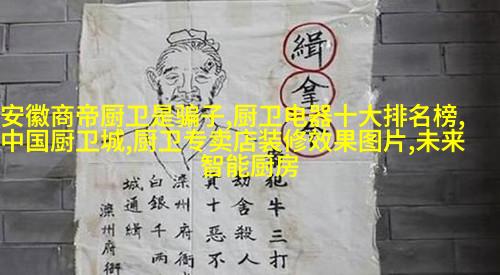 安徽商帝厨卫是骗子,厨卫电器十大排名榜,
中国厨卫城,厨卫专卖店装修效果图片,未来
智能厨房
緝拿
犯牛三打
劫舍殺人
十惡不
滦州府衙
白銀千兩
城通緝
滦州府衙